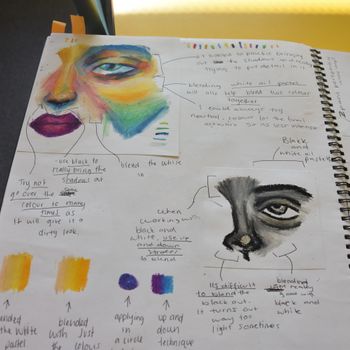 I wanted to practice bringing
out the shadows and
trying to put detail in it
blending white oil pastel
will also help blend the colour
together
I could always try
neutral colour for the
so its less intense
Black
and
white oil
pastels
-use black to
really bring the
shadows at
blend the white
in
Try not
go over the same
colour to many
times as
it will give it a
dirty look.
when
working
black and
white, use up
and down
strokes
to blend
Its difficult
to blend the
black out.
it turns out
way too
light sometimes
blended
really
good with
black and
white
blended
the white
pastel
blended
with just
the colours
applying
in
a circle
up and
down
technique